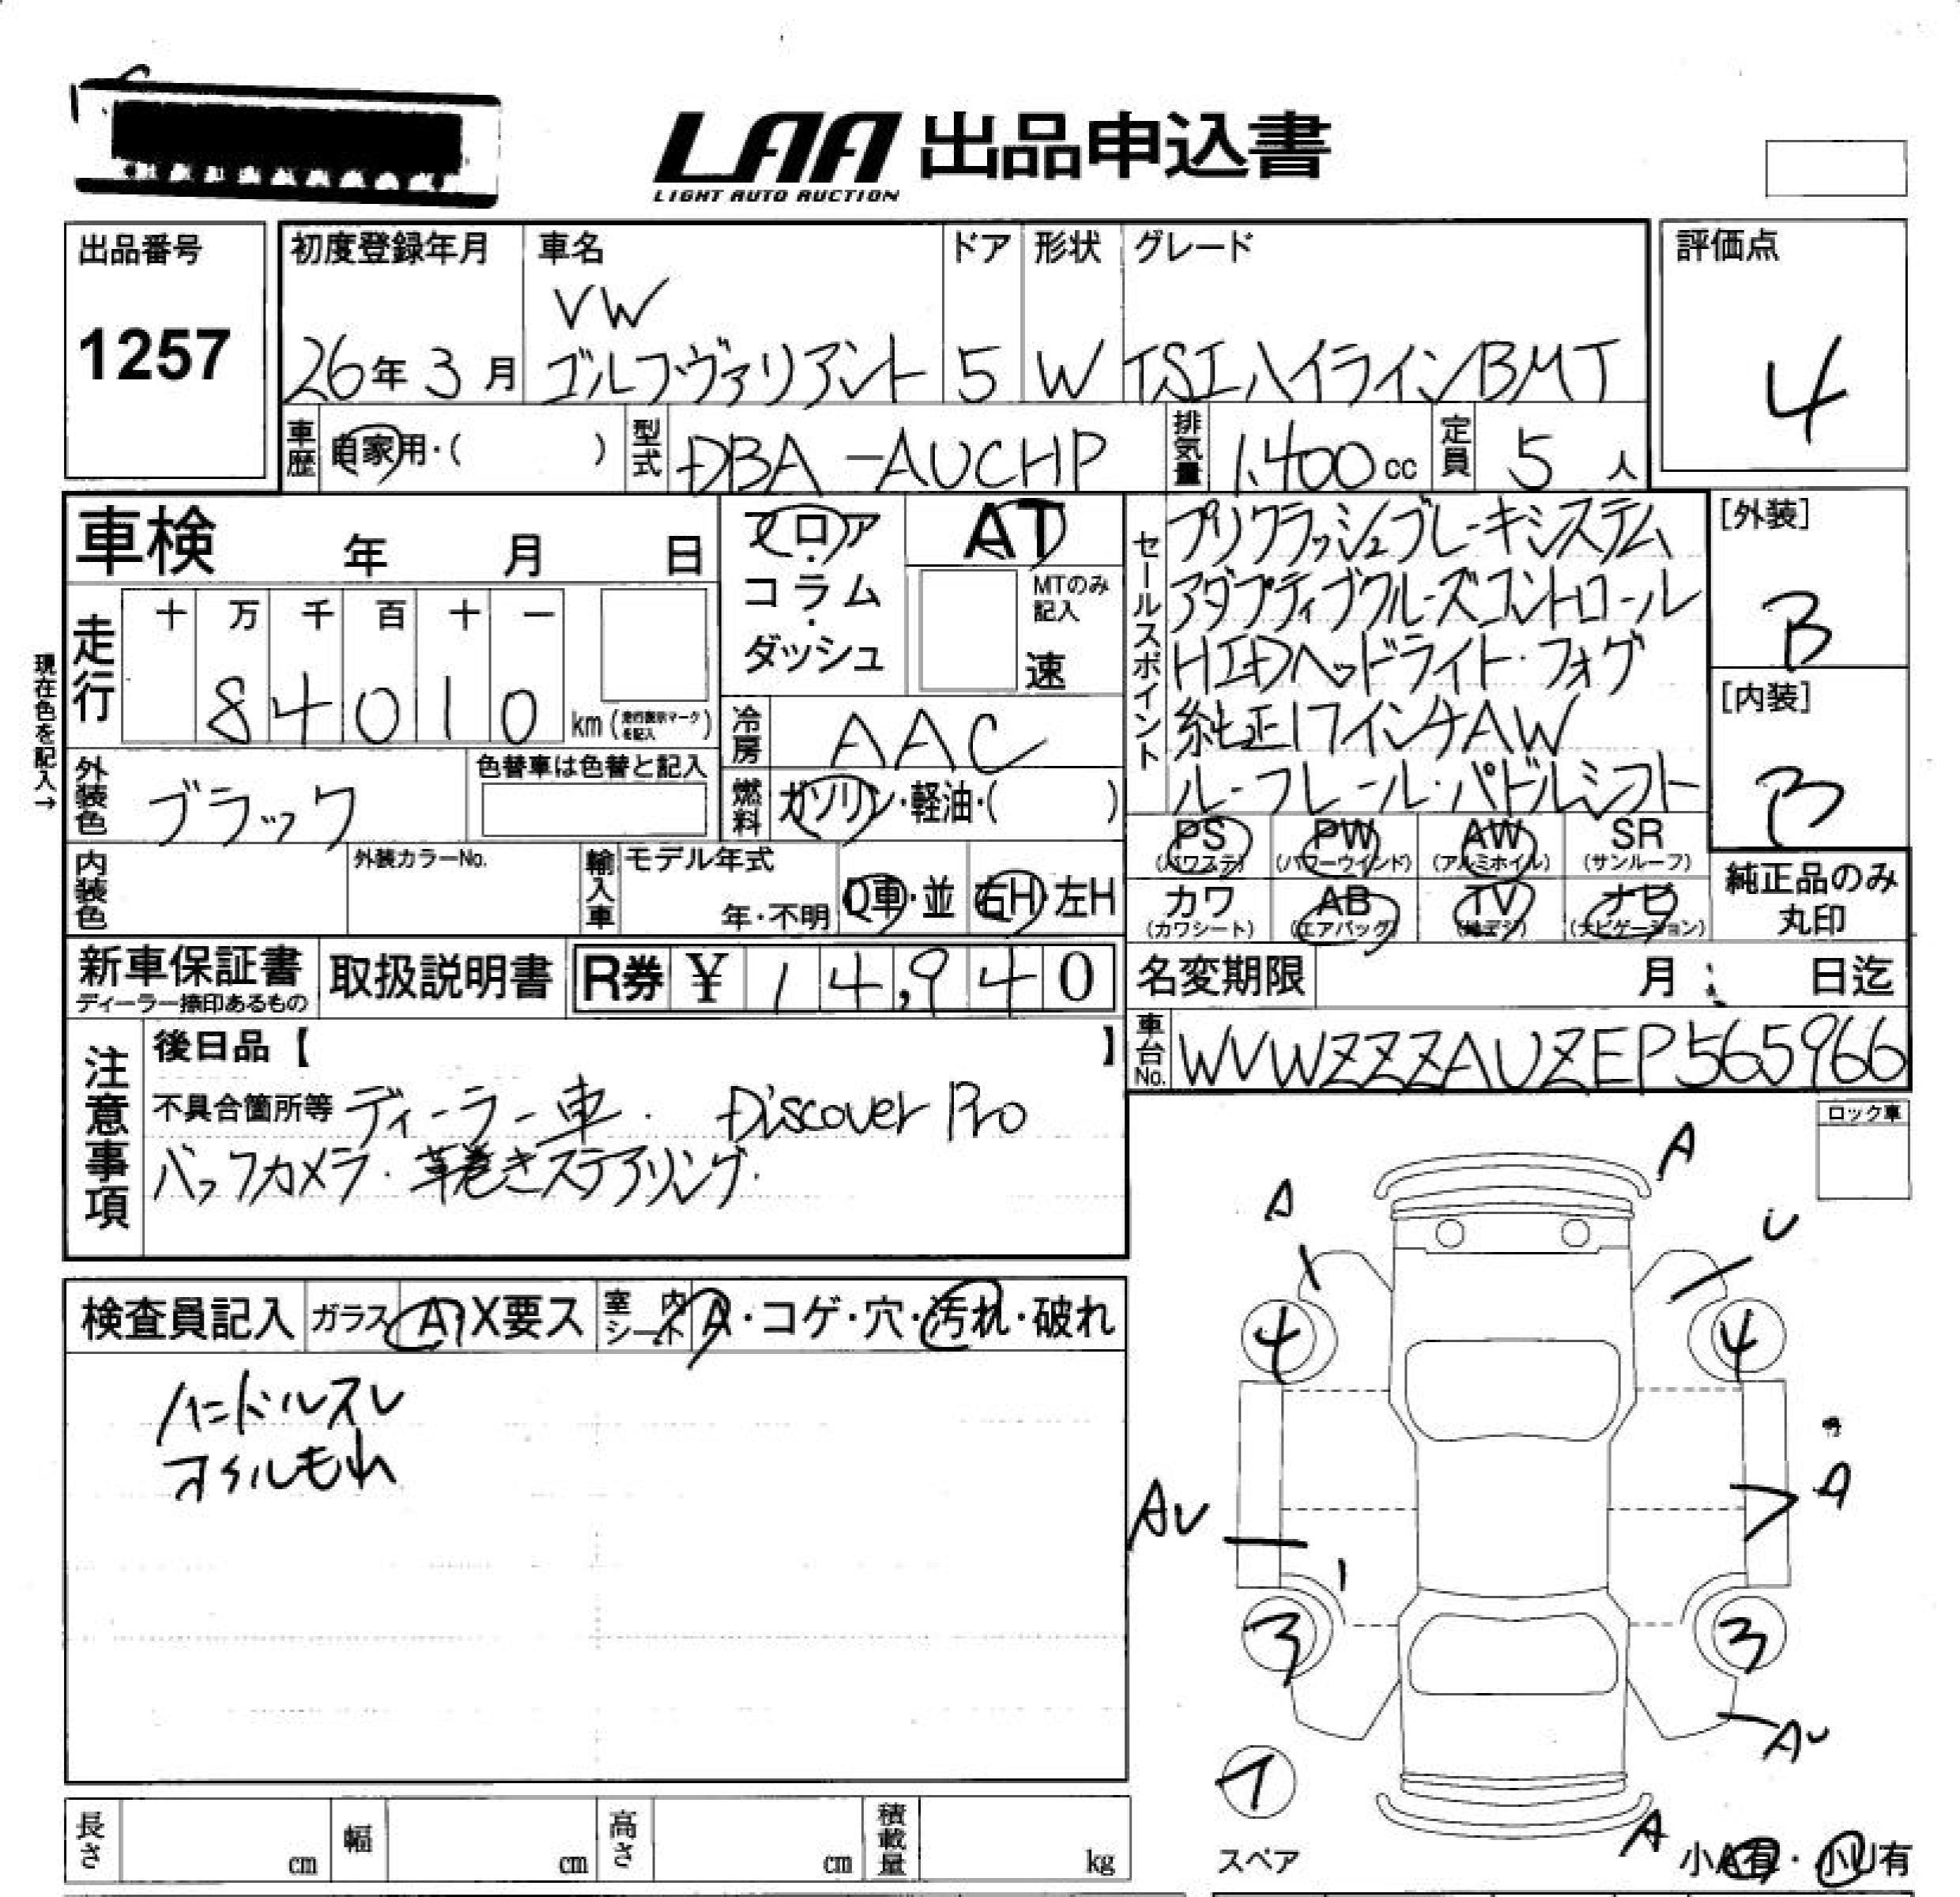 LAA 出品申込書
LIGHT AUTO AUCTION
出品番号
1257
初度登録年月
26年3月
車名
VW
ゴルフ・ヴァリアント
ドア
5
形状
W
グレード
TSIハイラインBMT
評価点
4
車歴 自家用・( )
型式 DBA-AUCHP
排気量 1,400cc
定員 5人
車検 年 月 日
フロア
コラム
ダッシュ
AT
MTのみ記入
速
現在色を記入→
走行
十 万 千 百 十 一
84010 km (走行表示マークを記入)
冷房 AAC
燃料 ガソリン・軽油・( )
外装色 ブラック
色替車は色替と記入
内装色
外装カラーNo.
輸入車
モデル年式
年・不明
D車・並
右H・左H
セールスポイント
プリクラッシュブレーキシステム
アダプティブクルーズコントロール
HIDヘッドライト・フォグ
純正17インチAW
ルーフレール・パドルシフト
[外装]
B
[内装]
B
PS (パワステ)
PW (パワーウインド)
AW (アルミホイル)
SR (サンルーフ)
カワ (カワシート)
AB (エアバッグ)
TV (地デジ)
ナビ (ナビゲーション)
純正品のみ丸印
新車保証書
ディーラー捺印あるもの
取扱説明書
R券 ¥ 14,940
名変期限 月 日迄
車台No. WVWZZZAUZEP565966
注意事項
後日品【 】
不具合箇所等 ディーラー車. Discover Pro
バックカメラ・革巻きステアリング.
ロック車
検査員記入
ガラス A・X要ス
室内シート A・コゲ・穴・汚れ・破れ
ハンドルスレ
オイルもれ
A
A
U
4
4
A
AU
3
3
AU
A
スペア
小A有・小U有
長さ cm
幅 cm
高さ cm
積載量 kg